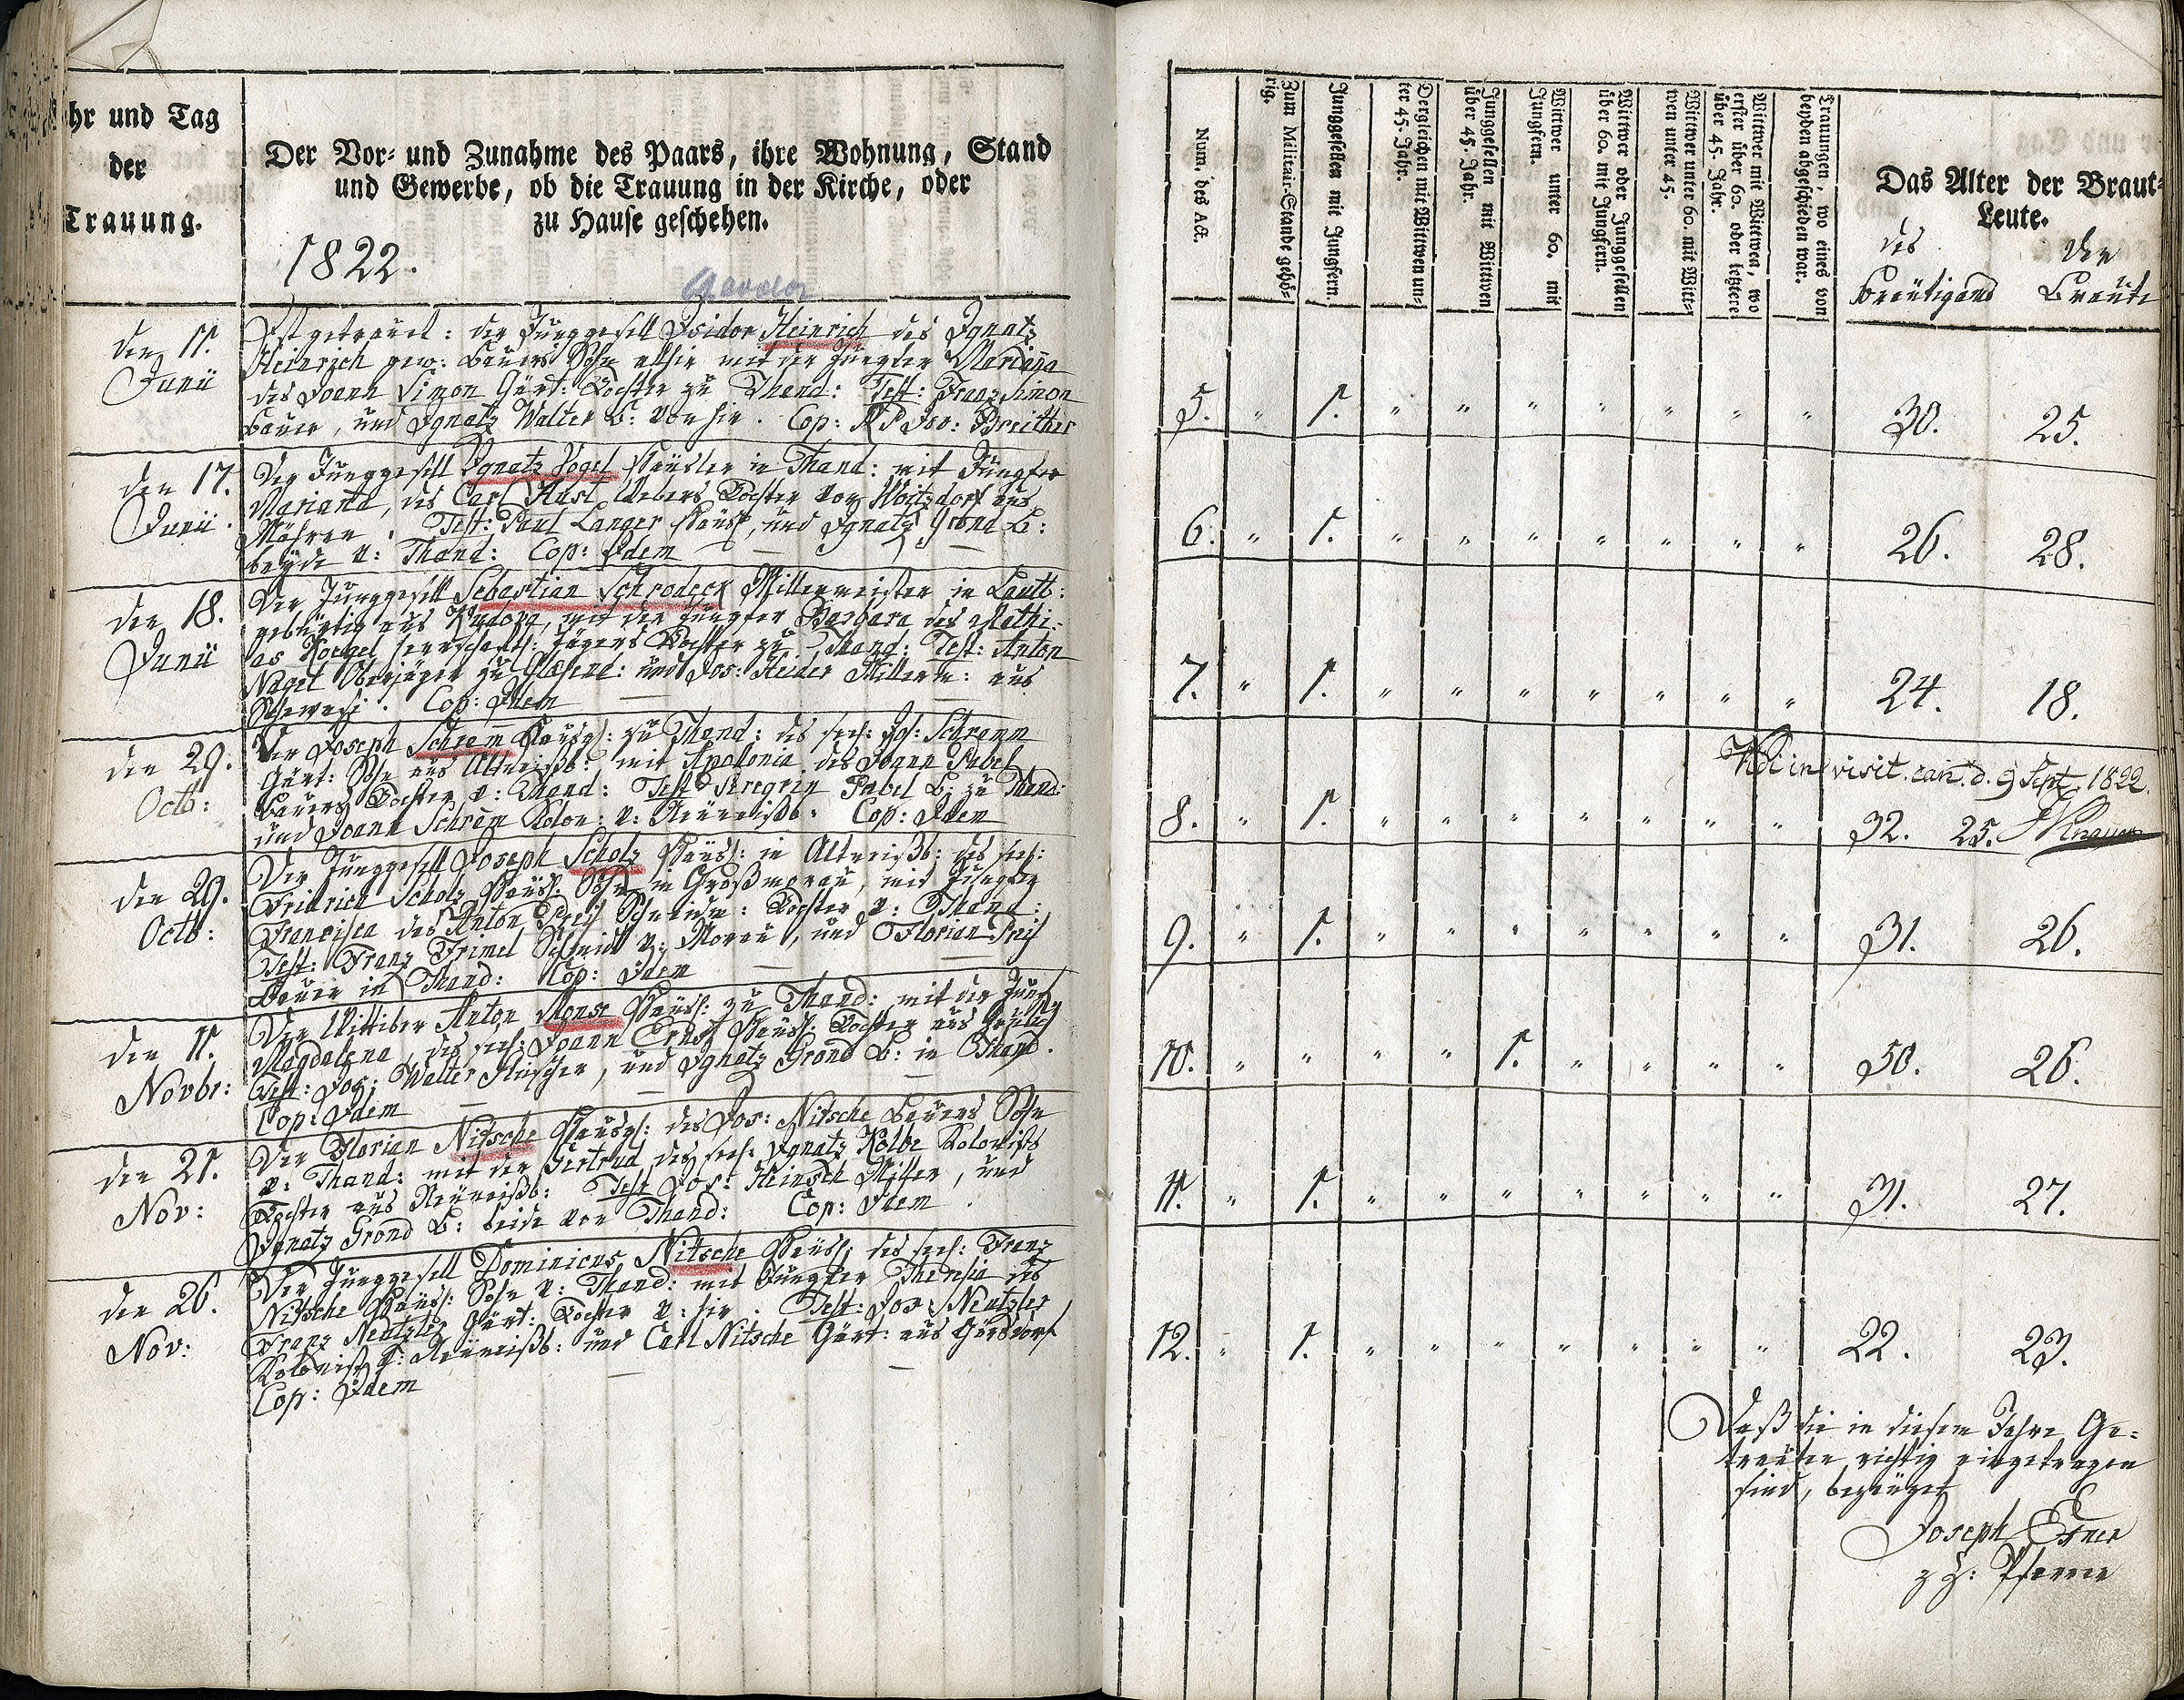 hr und Tag
der
Trauung.
Der Vor- und Zunahme des Paars, ihre Wohnung, Stand
und Gewerbe, ob die Trauung in der Kirche, oder
zu Hause geschehen.
1822.
den 11.
Junii
Ist getrauet: der Junggesell Isidor Heinrich des Ignatz
Heinrich gew: Bauers Sohn allhie mit der Jungfer Marianna
des Joann Simon Gärt: Tochter zu Thand: Test: Franz Simon
Bauer, und Ignatz Walter B: von hir. Cop: Breither
den 17.
Junii.
Der Junggesell Ignatz Vogel Häusler in Thand: mit Jungfer
Marianna, des Carl Webers Tochter von Woitzdorf aus
Mähren. Test: Paul Langer Häusl, und Ignatz Grond B:
beyde v: Thand: Cop: Idem
den 18.
Junii
Der Junggesell Sebastian Schrodeck Müllermeister in
gebürtig aus mit der Jungfer Barbara des Mathi-
as herrschaftl: Jägers Tochter zu Thand: Test: Anton
Nagel Oberjäger zu und Jos: Heider Müllerm: aus
Cop: Idem
den 29.
Octb:
Der Joseph Schrem zu Thand: des seel: Schremm
Gärt: Sohn aus Altweißb: mit Apolonia des Joann Pabel
Bauers Tochter v: Thand: Test Peregrin Pabel B: zu Thand:
und Joann Schrem Kolon: v: Neuweißb: Cop: Idem
den 29.
Octb:
Der Junggesell Joseph Scholz Häusl: in Altweißb: des seel:
Fridrich Scholz Häusl: Sohn in Großmorau, mit Jungfer
Francisca des Anton Schneider: Tochter v: Thand:
Test: Franz Frimel Schmidt v: Morau, und Florian
Bauer in Thand: Cop: Idem
den 11.
Novbr:
Der Wittiber Anton Monse Häusl: zu Thand: mit der Jungf
Magdalena, des seel: Joann Ernst Häusl: Tochter aus
Test: Jos: Walter und Ignatz Grond B: in Thand.
Cop: Idem
den 21.
Nov:
Der Florian Nitsche des Jos: Nitsche Bauers Sohn
v: Thand: mit der Gertrud des seel: Ignatz Kolbe Kolonists
Tochter aus Neuweißb: Test Jos: Heinsch Müller, und
Ignatz Grond B: beide von Thand: Cop: Idem
den 26.
Nov:
Der Junggesell Dominicus Nitsche Häusl: des seel: Franz
Nitsche Häusl: Sohn v: Thand: mit Jungfer Theresia des
Franz Neutzler Gärt: Tochter v: hir. Test: Jos: Neutzler
Kolonist v: Neuweißb: und Carl Nitsche Gärt: aus Görsdorf
Cop: Idem
Num. des Act.
Zum Militair-Stande gehö-
rig.
Junggesellen mit Jungfern.
Dergleichen mit Wittwen un-
ter 45. Jahr.
Junggesellen mit Wittwen
über 45. Jahr.
Wittwer unter 60. mit
Jungfern.
Wittwer oder Junggesellen
über 60. mit Jungfern.
Wittwer unter 60. mit Witt-
wen unter 45.
Wittwer mit Wittwen, wo
erster über 60. oder letztere
über 45. Jahr.
Trauungen, wo eines von
beyden abgeschieden war.
Das Alter der Braut-
Leute.
des
Bräutigams
der
Bräute
5. " 1. " " " " " " " 30. 25.
6. " 1. " " " " " " " 26. 28.
7. " 1. " " " " " " " 24. 18.
Vidi in visit. can. d. 9 Sept. 1822.
8. " 1. " " " " " " " 32. 25.
9. " 1. " " " " " " " 31. 26.
10. " " " " 1. " " " " 50. 26.
11. " 1. " " " " " " " 31. 27.
12. " 1. " " " " " " " 22. 23.
Daß die in diesem Jahre Ge-
trauten richtig eingetragen
sind, bezeuget
Joseph Exner
z Z: Pfarrer